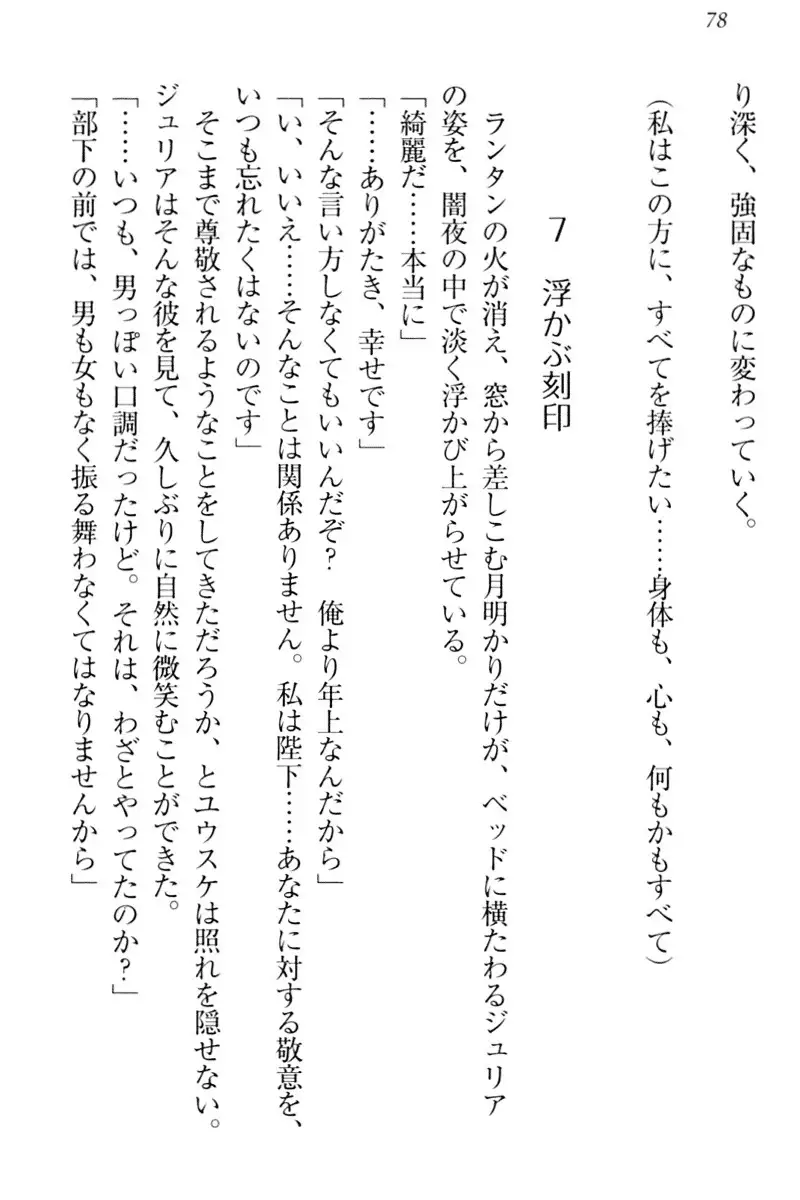 78
り深く、強固なものに変わっていく。
（私はこの方に、すべてを捧げたい……身体も、心も、何もかもすべて）
7　浮かぶ刻印
ランタンの火が消え、窓から差しこむ月明かりだけが、ベッドに横たわるジュリア
の姿を、闇夜の中で淡く浮かび上がらせている。
「綺麗だ……本当に」
「……ありがたき、幸せです」
「そんな言い方しなくてもいいんだぞ？　俺より年上なんだから」
「い、いいえ……そんなことは関係ありません。私は陛下……あなたに対する敬意を、
いつも忘れたくはないのです」
そこまで尊敬されるようなことをしてきただろうか、とユウスケは照れを隠せない。
ジュリアはそんな彼を見て、久しぶりに自然に微笑むことができた。
「……いつも、男っぽい口調だったけど。それは、わざとやってたのか？」
「部下の前では、男も女もなく振る舞わなくてはなりませんから」